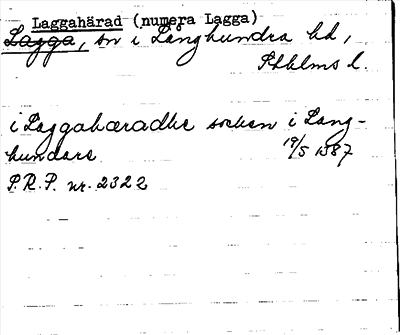 Laggahärad (numera Lagga)
Lagga, sn i Långhundra hd,
Sthlms l.
i Laggahæradhe socken i Lang-
hundare 19/5 1387
S.R.P. nr. 2322